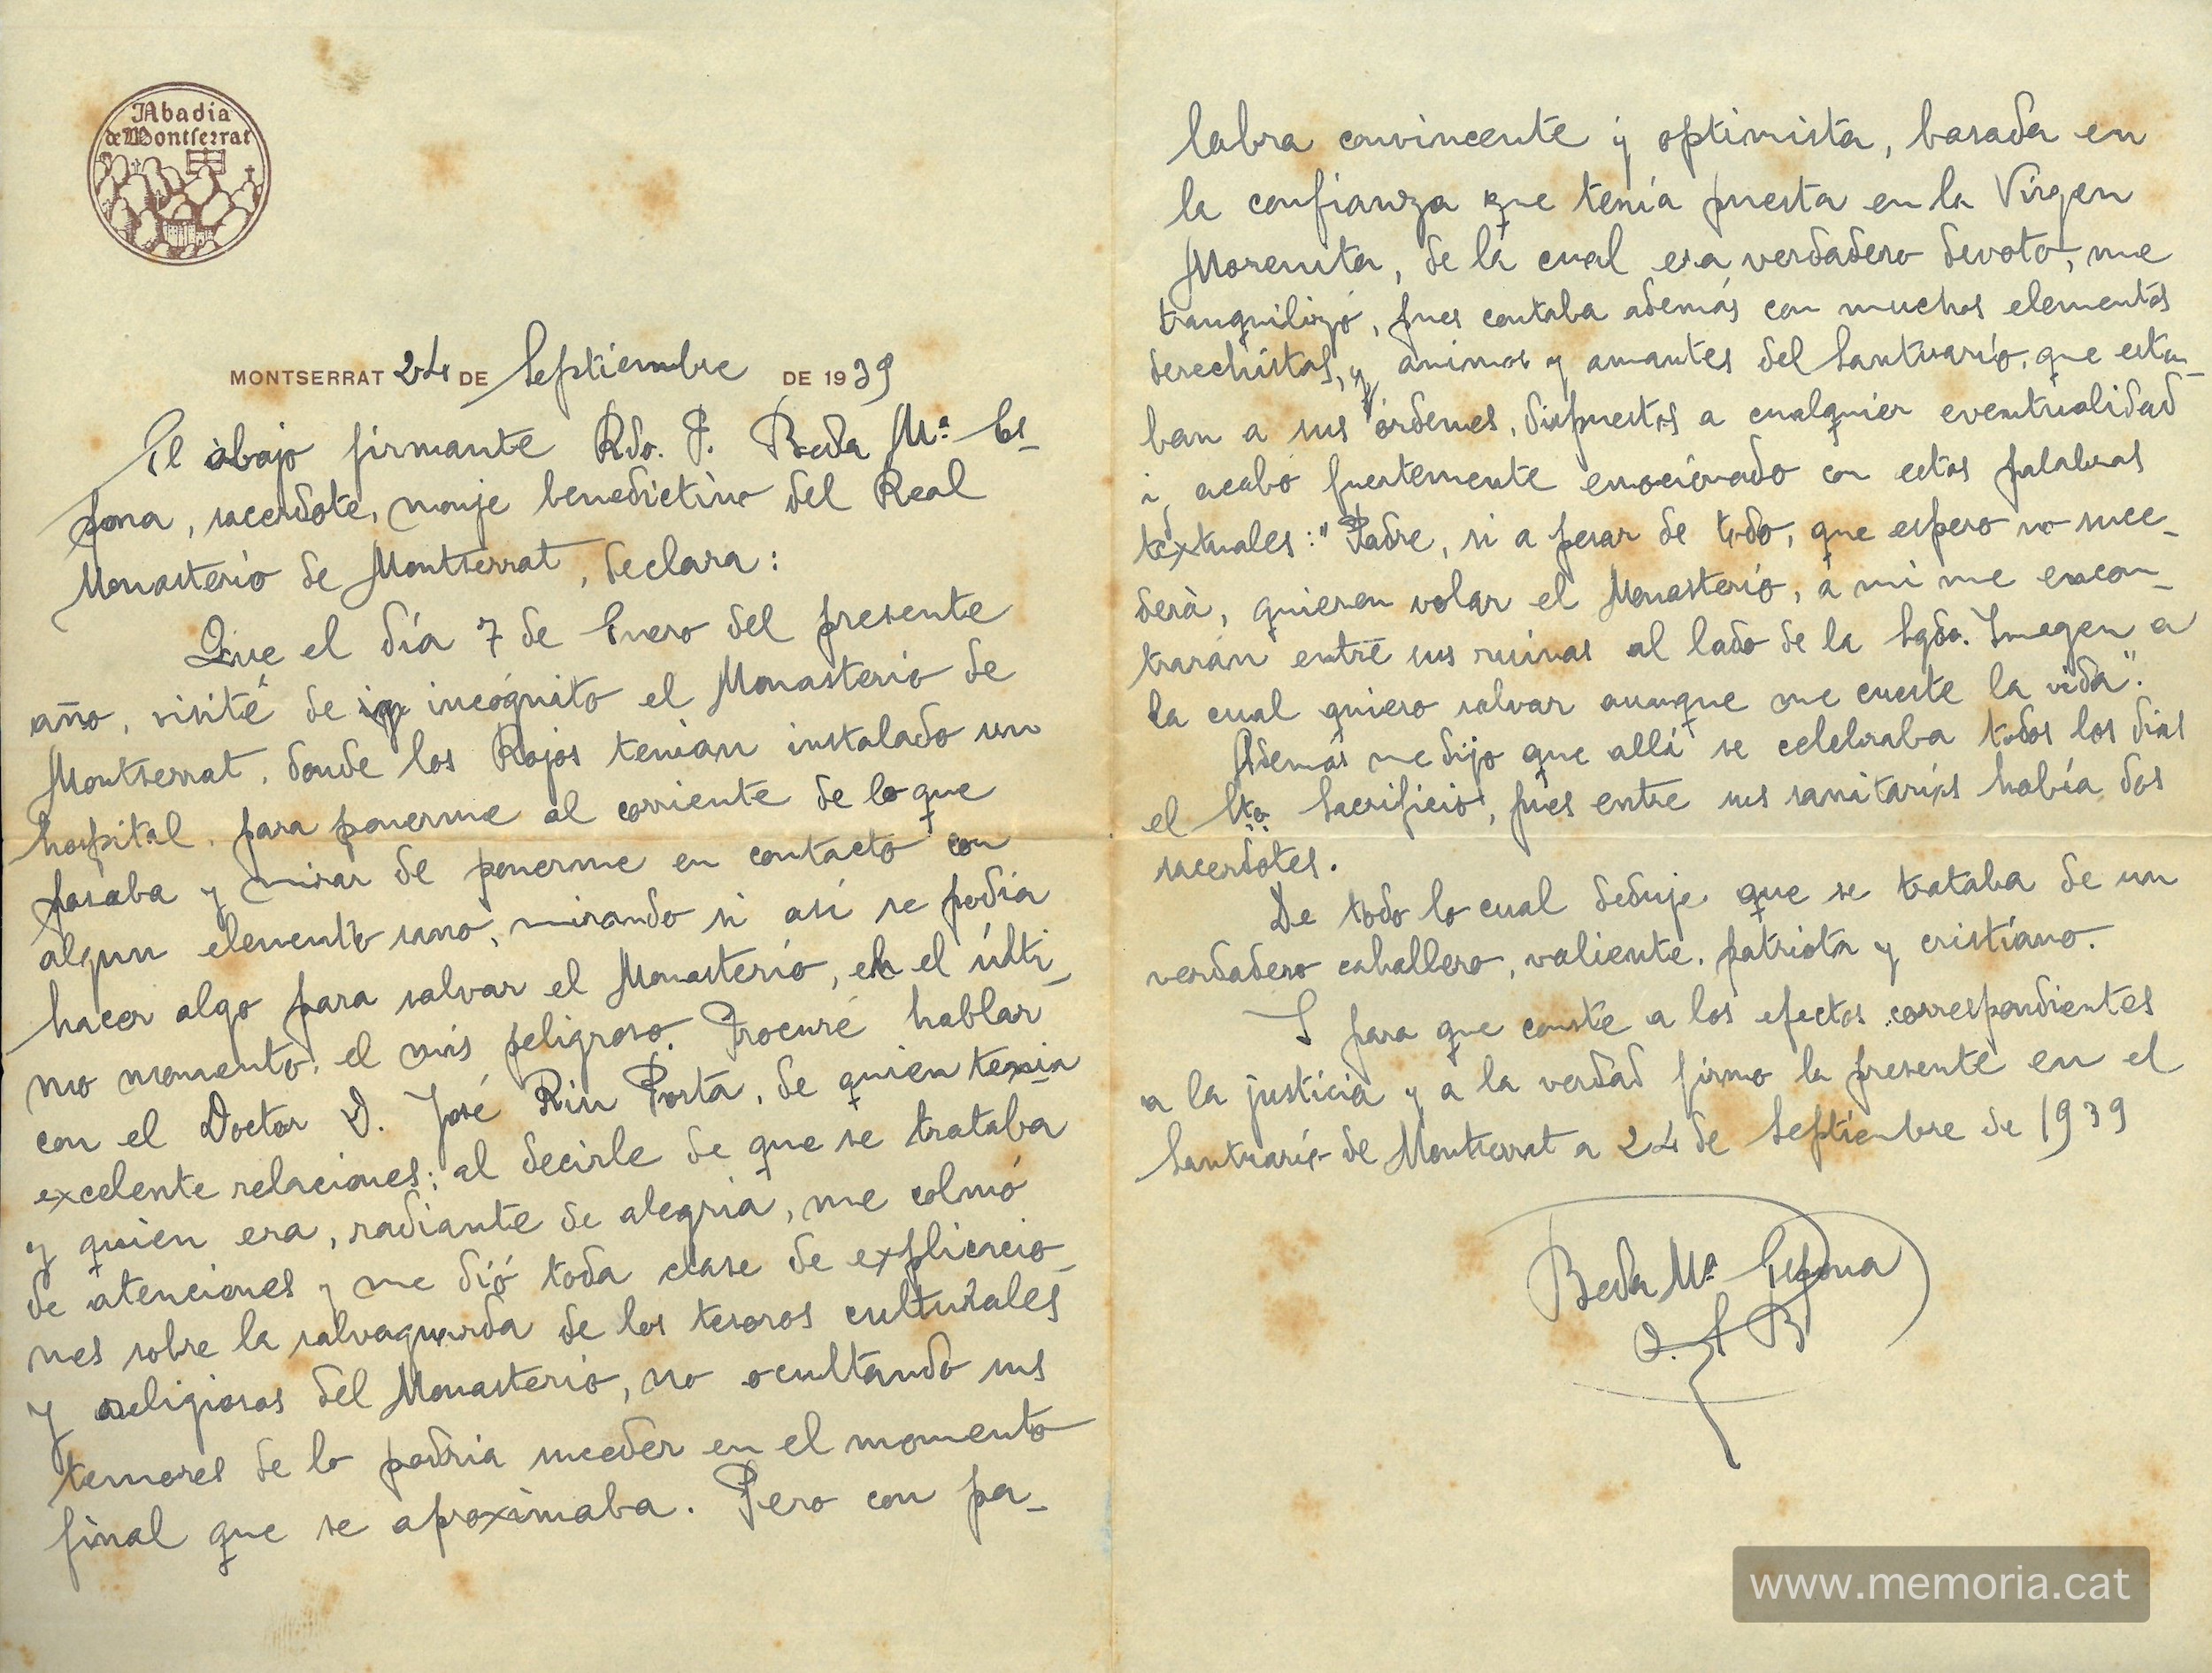 Abadía
de Montserrat
MONTSERRAT 24 DE Septiembre DE 1939
El abajo firmante Rdo. P. Beda Mª Es-
pona, sacerdote, monje benedictino del Real
Monasterio de Montserrat, declara:
Que el día 7 de Enero del presente
año, visité de incógnito el Monasterio de
Montserrat, donde los Rojos tenian instalado un
hospital, para ponerme al corriente de lo que
pasaba y mirar de ponerme en contacto con
algun elemento sano, mirando si así se podía
hacer algo para salvar el Monasterio, en el últi-
mo momento, el más peligroso. Procuré hablar
con el Doctor D. José Riu Porta, de quien tenia
excelente relaciones; al decirle de que se trataba
y quien era, radiante de alegria, me colmó
de atenciones y me dió toda clase de explicacio-
nes sobre la salvaguarda de los tesoros culturales
y religiosos del Monasterio, no ocultando sus
temores de lo podria suceder en el momento
final que se aproximaba. Pero con pa-
labra convincente y optimista, basada en
la confianza que tenía puesta en la Virgen
Morenita, de la cual era verdadero devoto, me
tranquilizó, pues contaba además con muchos elementos
derechistas, y animos y amantes del Santuario, que esta-
ban a sus órdenes, dispuestos a cualquier eventualidad
i acabó fuertemente emocionado con estas palabras
textuales: "Padre, si a pesar de todo, que espero no suce-
derà, quieren volar el Monasterio, a mi me encon-
trarán entre sus ruinas al lado de la Sgda. Imagen a
la cual quiero salvar aunque me cueste la vida".
Además me dijo que allí se celebraba todos los dias
el Sto. Sacrificio, pues entre sus sanitarios había dos
sacerdotes.
De todo lo cual deduje que se trataba de un
verdadero caballero, valiente, patriota y cristiano.
I para que conste a los efectos correspondientes
a la justicia y a la verdad firmo la presente en el
Santuario de Montserrat a 24 de Septiembre de 1939
Beda Mª Espona
O. S. B
www.memoria.cat